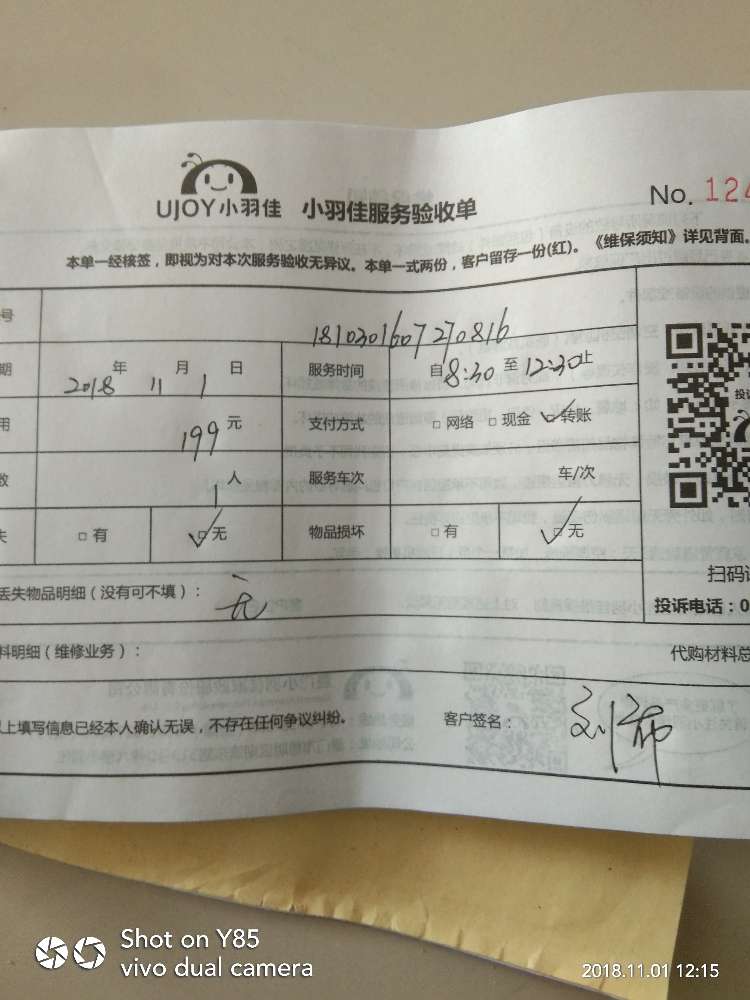 UJOY小羽佳 小羽佳服务验收单
No. 124
本单一经核签，即视为对本次服务验收无异议。本单一式两份，客户留存一份(红)。《维保须知》详见背面。
号 1810301607270816
期 2018 年 11 月 1 日 服务时间 自 8:30 至 12:30 止
用 199 元 支付方式 □ 网络 □ 现金 ☑ 转账
数 1 人 服务车次 车/次
失 □ 有 ☑ 无 物品损坏 □ 有 ☑ 无
丢失物品明细（没有可不填）： 无
扫码
投诉电话：0
料明细（维修业务）： 代购材料总
以上填写信息已经本人确认无误，不存在任何争议纠纷。 客户签名：
Shot on Y85
vivo dual camera
2018.11.01 12:15